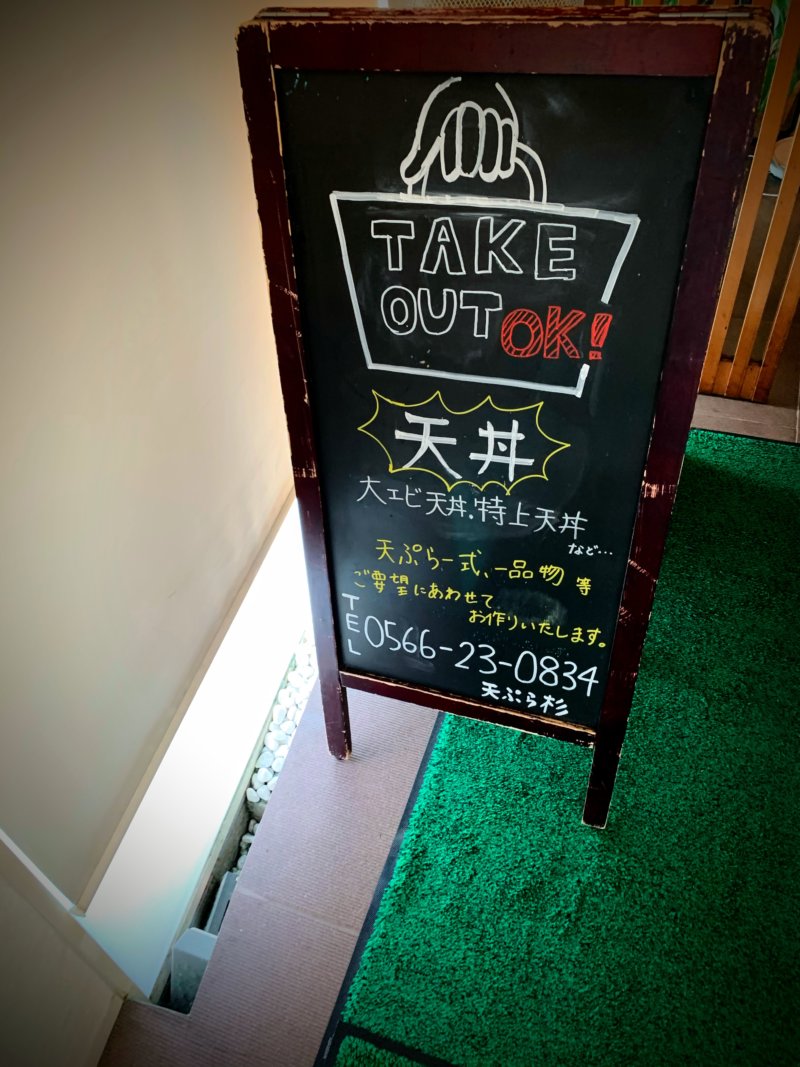 TAKE
OUT OK!
天丼
大エビ天丼.特上天丼
など…
天ぷら一式、一品物 等
ご要望にあわせて
お作りいたします。
TEL 0566-23-0834
天ぷら杉